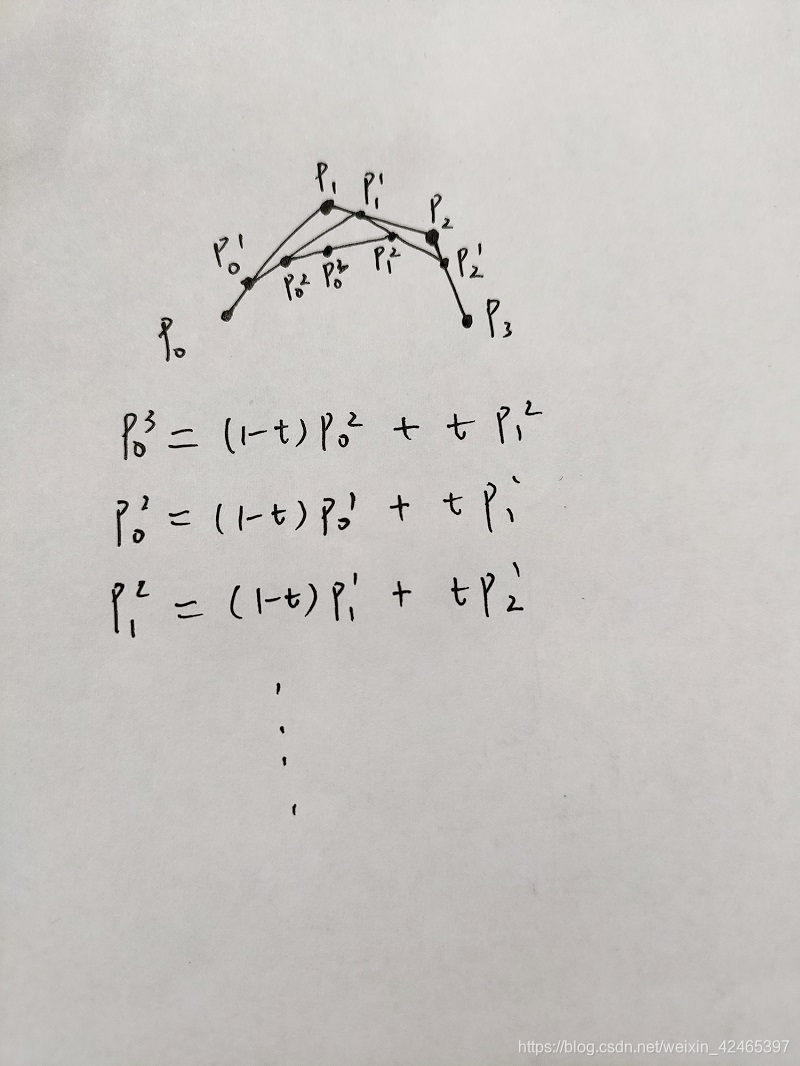 P₁ P₁¹ P₂
P₀¹ P₀² P₀³ P₁² P₂¹
P₀ P₃
P₀³ = (1-t) P₀² + t P₁²
P₀² = (1-t) P₀¹ + t P₁¹
P₁² = (1-t) P₁¹ + t P₂¹
https://blog.csdn.net/weixin_42465397